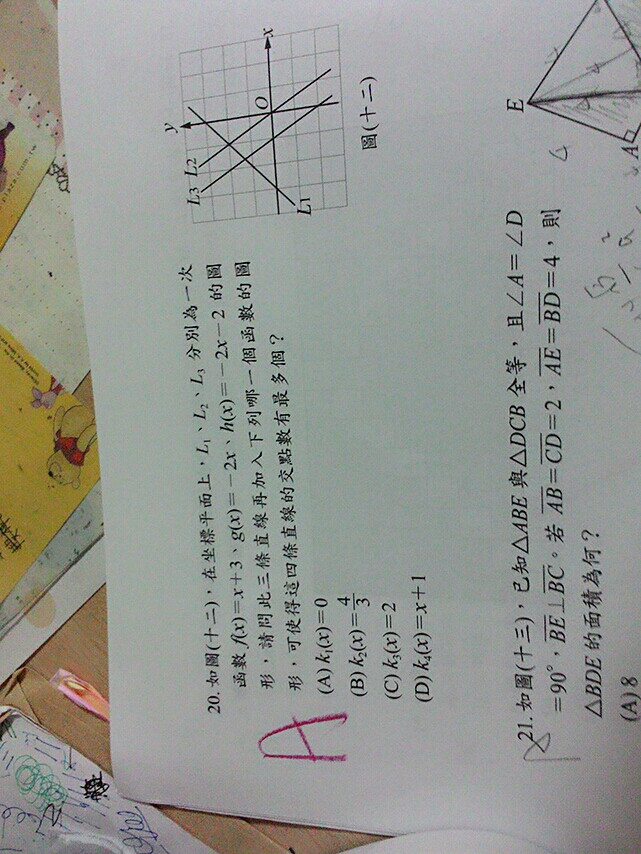 20. 如圖(十二),在坐標平面上,L₁、L₂、L₃ 分別為一次
函數 f(x)=x+3、g(x)=-2x、h(x)=-2x-2 的圖
形,請問此三條直線再加入下列哪一個函數的圖
形,可使得這四條直線的交點數有最多個?
(A) k₁(x)=0
(B) k₂(x)=4/3
(C) k₃(x)=2
(D) k₄(x)=x+1
A
y
x
O
L₃ L₂
L₁
圖(十二)
21. 如圖(十三),已知△ABE 與△DCB 全等,且∠A=∠D
=90°,BE⊥BC。若 AB=CD=2,AE=BD=4,則
△BDE 的面積為何?
(A) 8
E
A
4